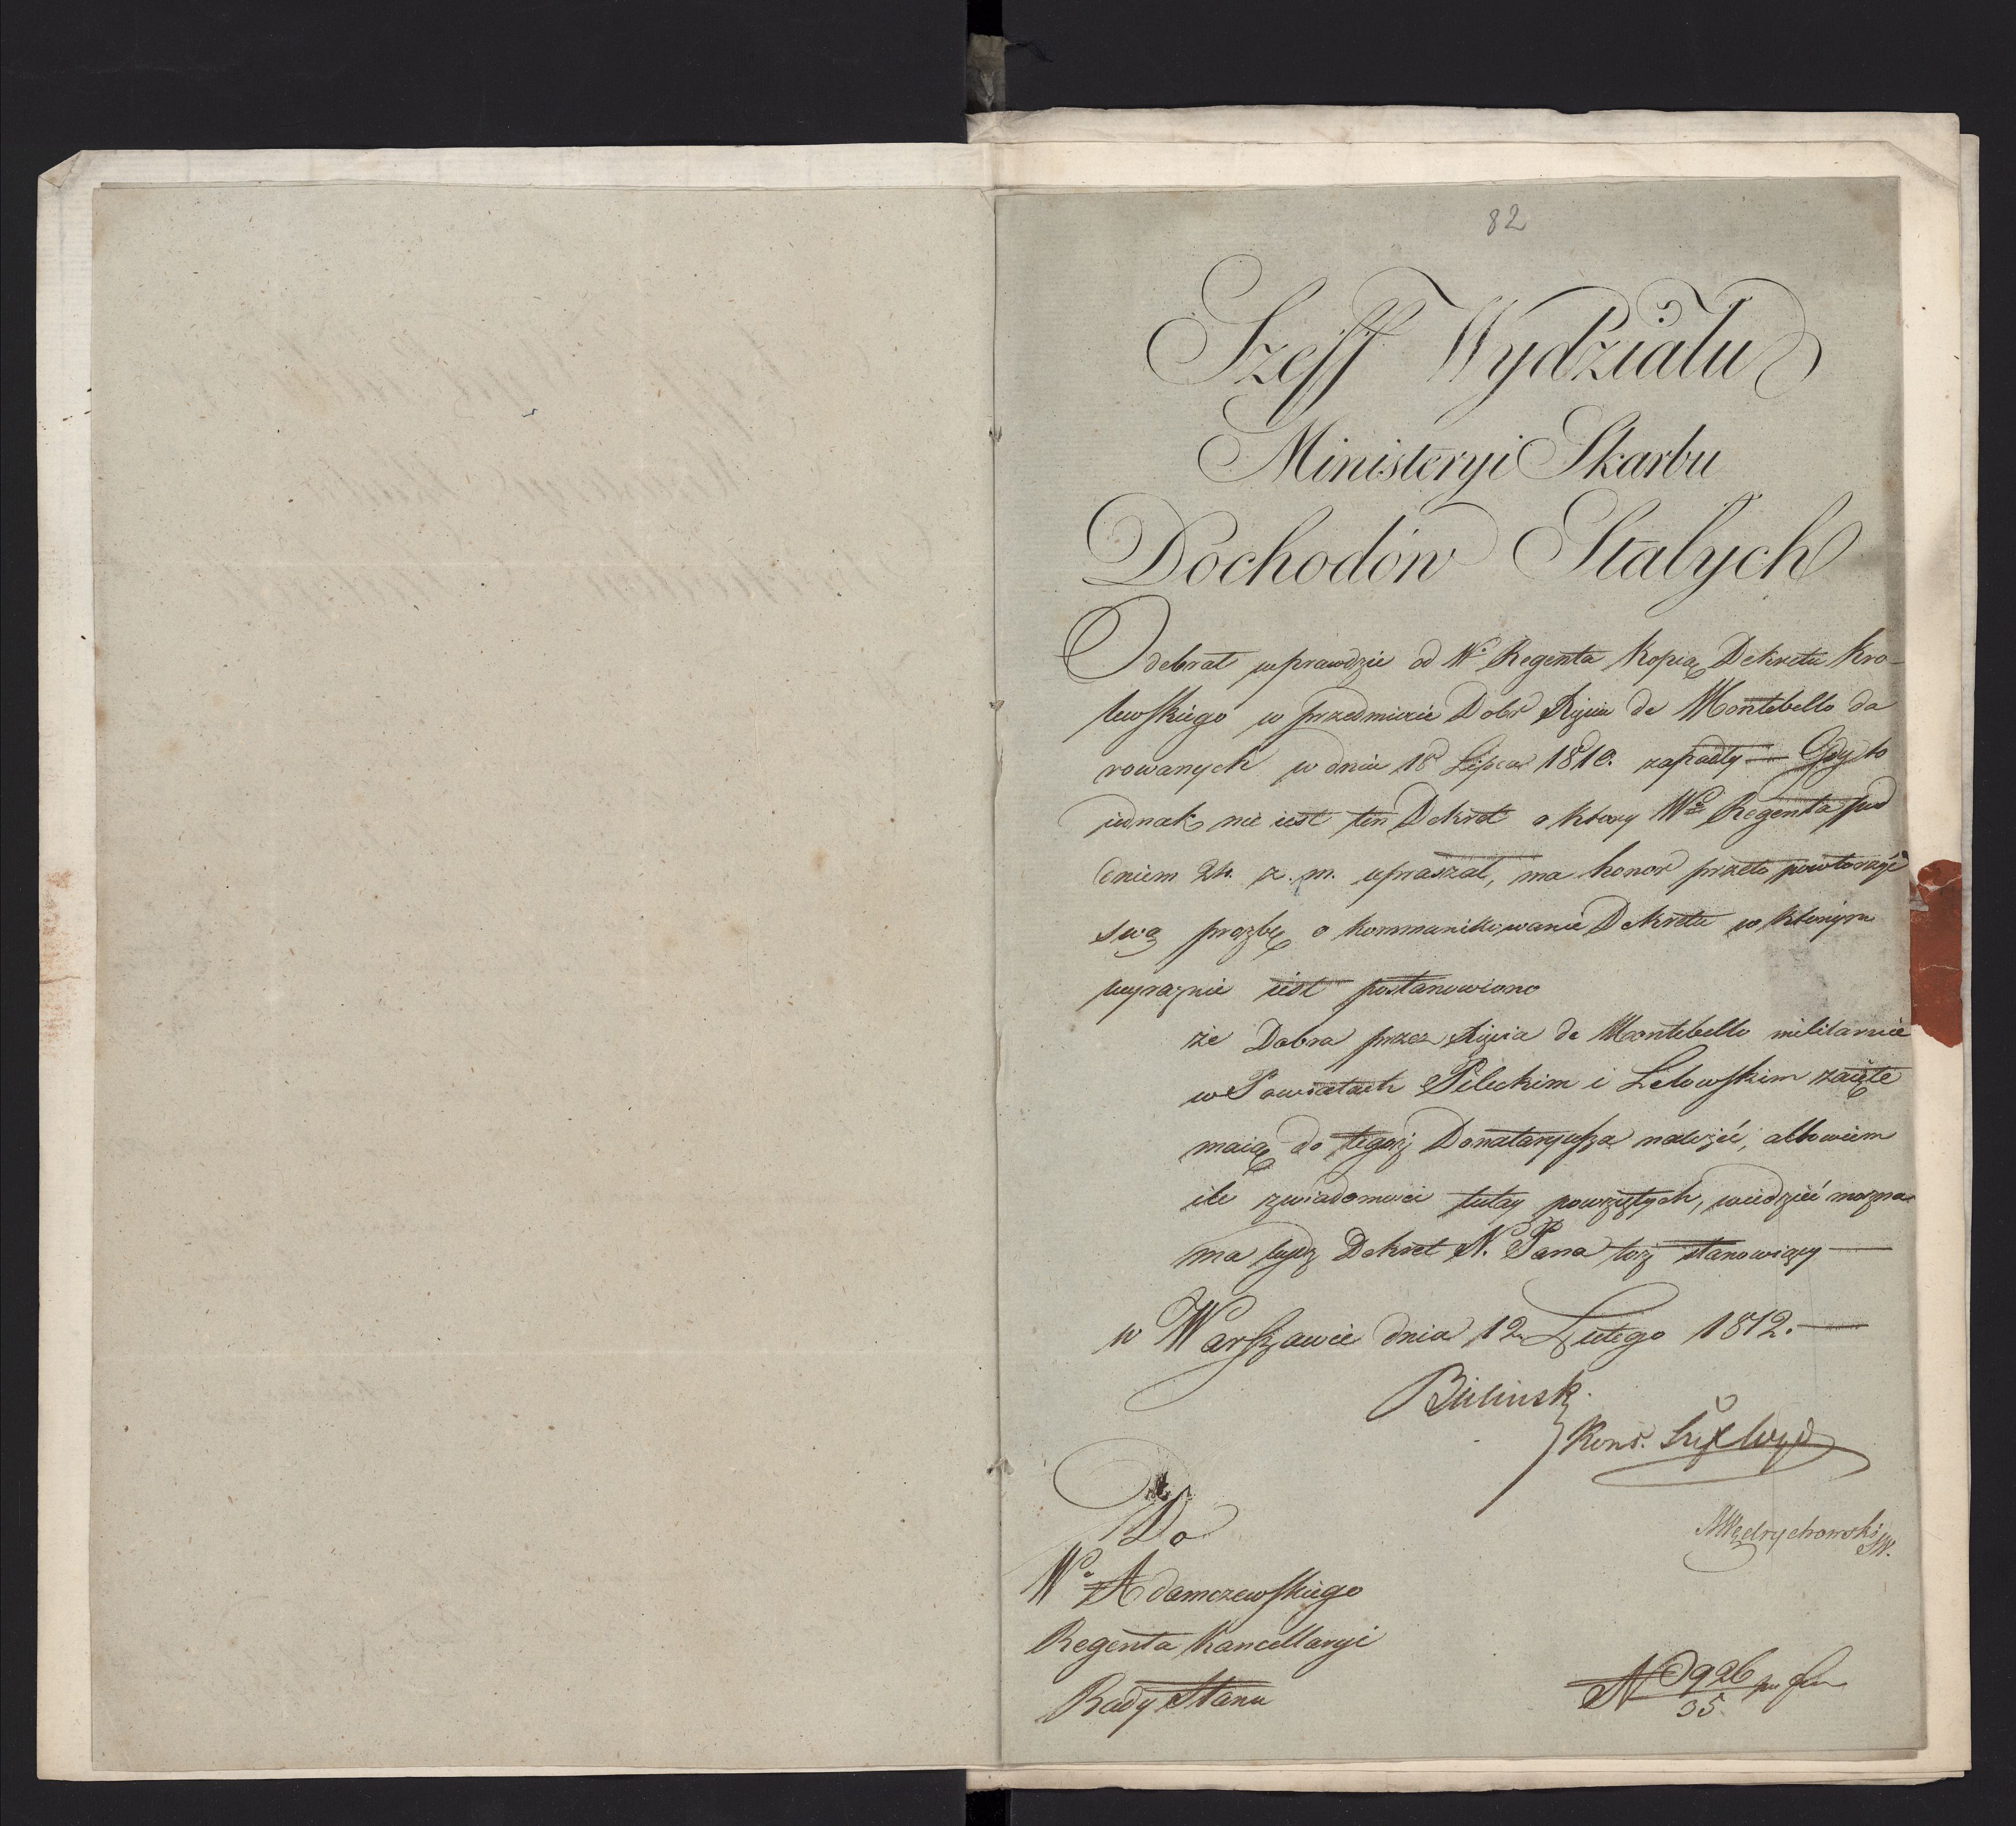 82
Szeff Wydziału
Ministeryi Skarbu
Dochodów Stałych
Odebrał wprawdzie od Wo Regenta Kopią Dekretu Kro-
lewskiego w przedmiocie Dobr Xięcia de Montebello da
rowanych w dniu 18 Lipca 1810. zapadły — Gdy to
iednak nie iest ten Dekret o ktory Wo Regenta pod
dniem 24. z. m. upraszał, ma honor przeto powtorzyć
swą prozbę o kommunikowanie Dekretu w ktorym
wyraznie iest postanowiono
że Dobra przez Xięcia de Montebello militarnie
w Powiatach Pileckim i Lelowskim zaięte
maią do tegoż Donataryusza należeć, albowiem
ile z wiadomości tutay powziętych, wiedzieć można
ma bydz Dekret N. Pana toż stanowiący —
w Warszawie dnia 12 Lutego 1812. —
Bilinski
Kons. Szef Wyd
MWędrychowski
SW.
Do
Wo Adamczewskiego
Regenta Kancellaryi
Rady Stanu
N 926
35